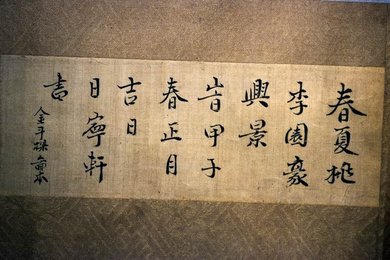 春夏桃
李園豪
興景
旹甲子
春正月
吉日
日寧軒
書
金斗株